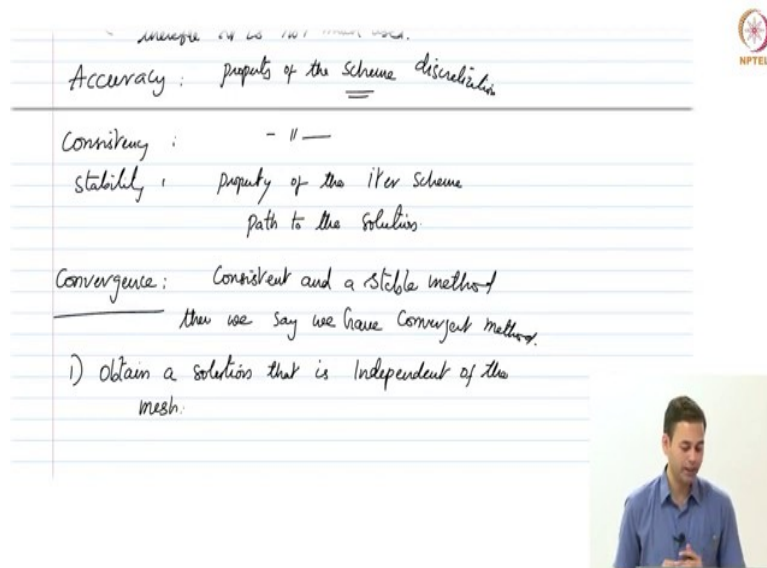 therefore it is not much used.
NPTEL
Accuracy : property of the scheme discretization
Consistency : - " —
Stability : property of the iter scheme
path to the solution.
Convergence : Consistent and a stable method
then we say we have convergent method.
1) Obtain a solution that is independent of the
mesh.